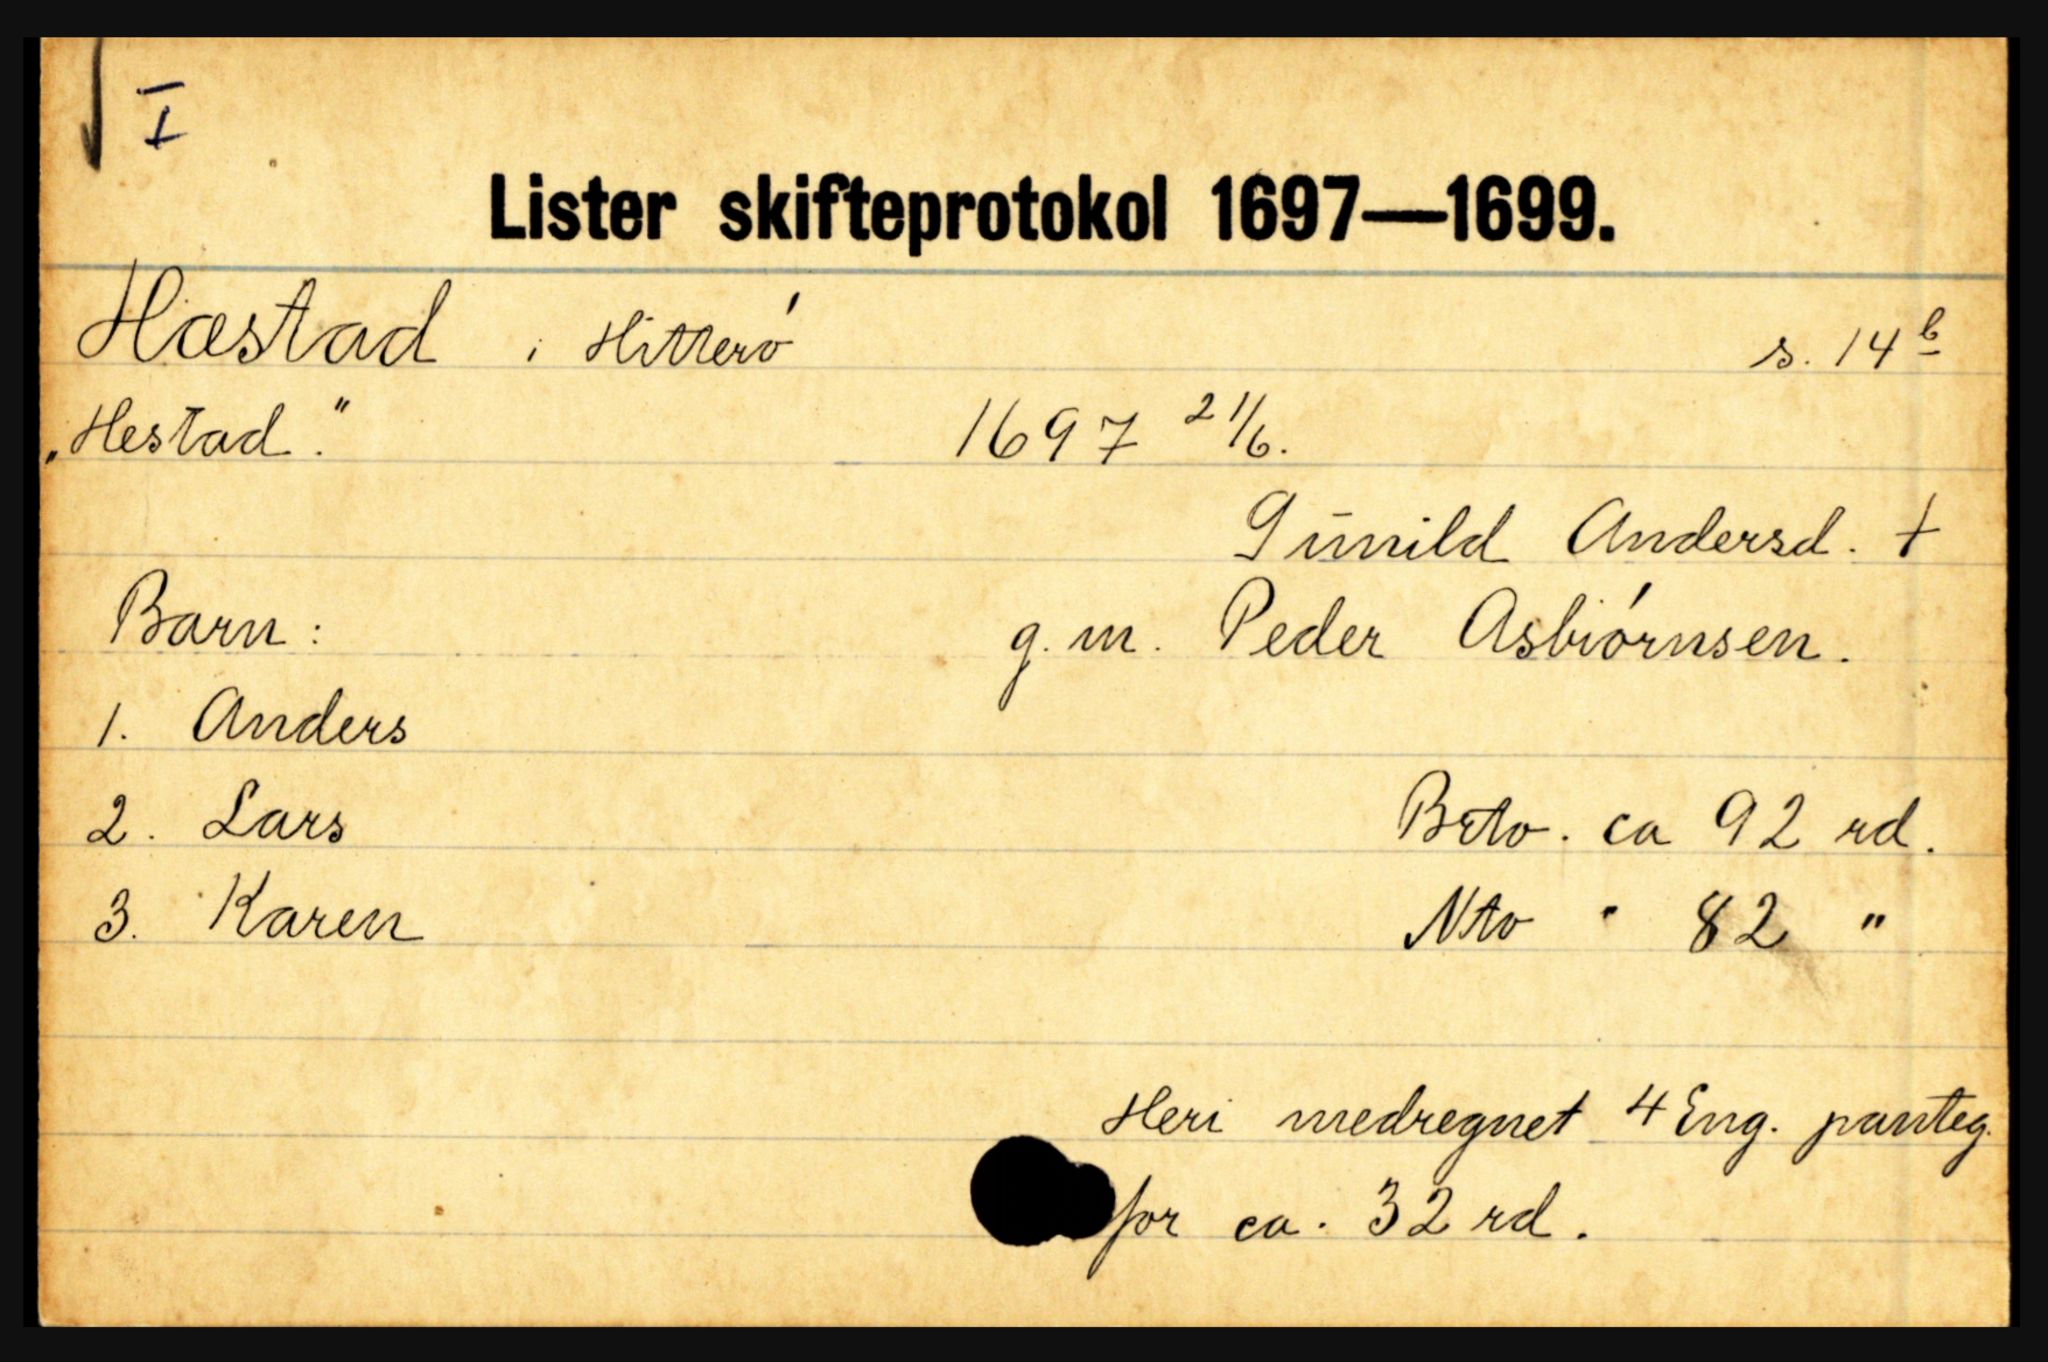 I
Lister skifteprotokol 1697—1699.
Hæstad i Hitteró s. 14 b
„Hestad." 1697 21/6.
Gūnild Andersd. †
Barn: g. m. Peder Asbiórnsen.
1. Anders
2. Lars Brto. ca 92 rd.
3. Karen Nto " 82 "
Heri medregnet 4 Eng. panteg.
for ca. 32 rd.